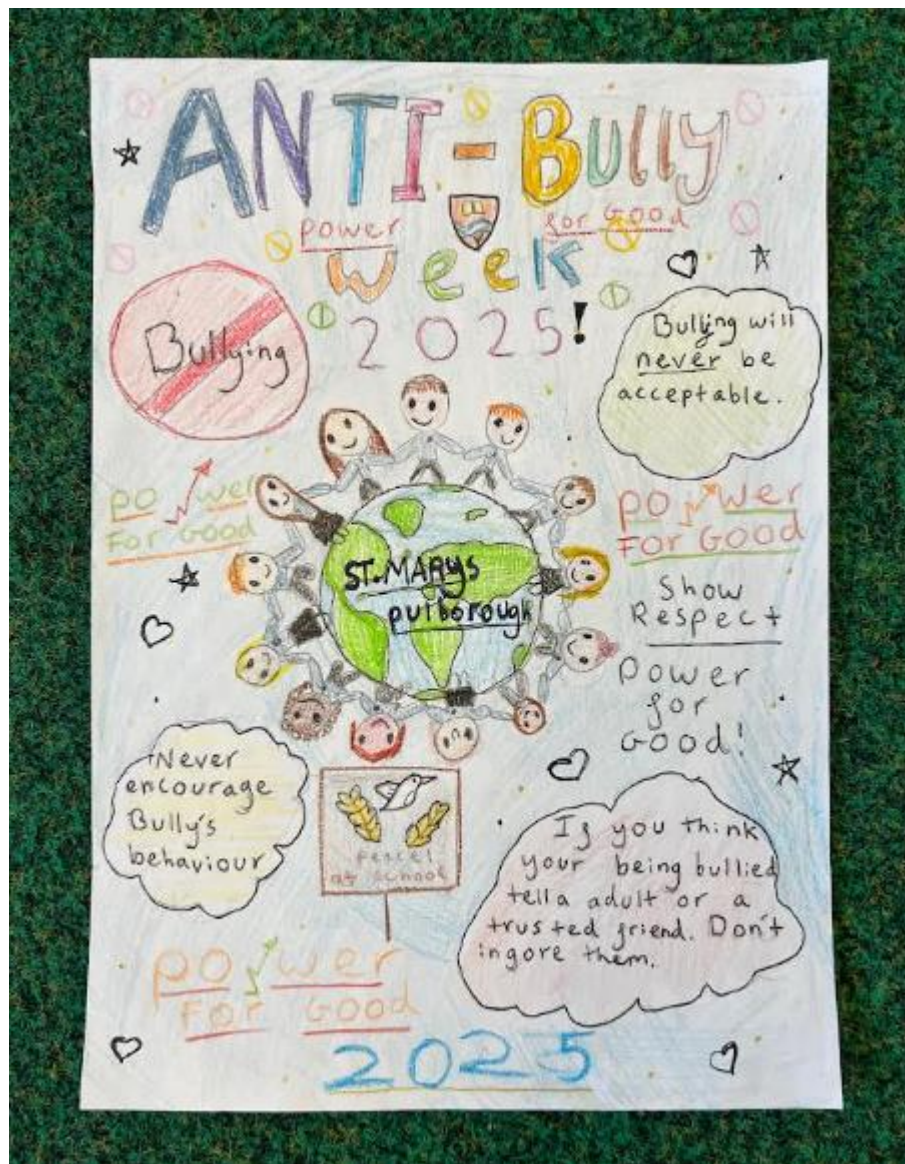 ANTI-BUlly
power for Good
week
2025!
Bullying
Bullijng will
never be
acceptable.
power
For Good
power
For Good
ST.MARYS
pulborough
Show
Respect
power
for
Good!
Never
encourage
Bully's
behaviour
peace!
at school
If you think
your being bullied
tell a adult or a
trusted friend. Don't
ingore them.
power
For Good
2025